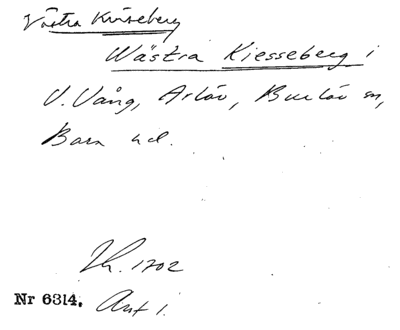 Västra Kirseberg
Wästra Kiesseberg i
V. Vång, Arlöv, Burlöv sn,
Bara hd.
Lh. 1702
Nr 6314. Ant 1.